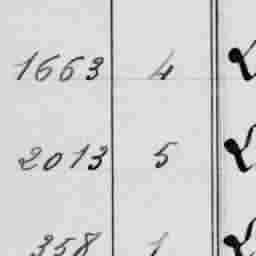 1663 4
2013 5
358 1